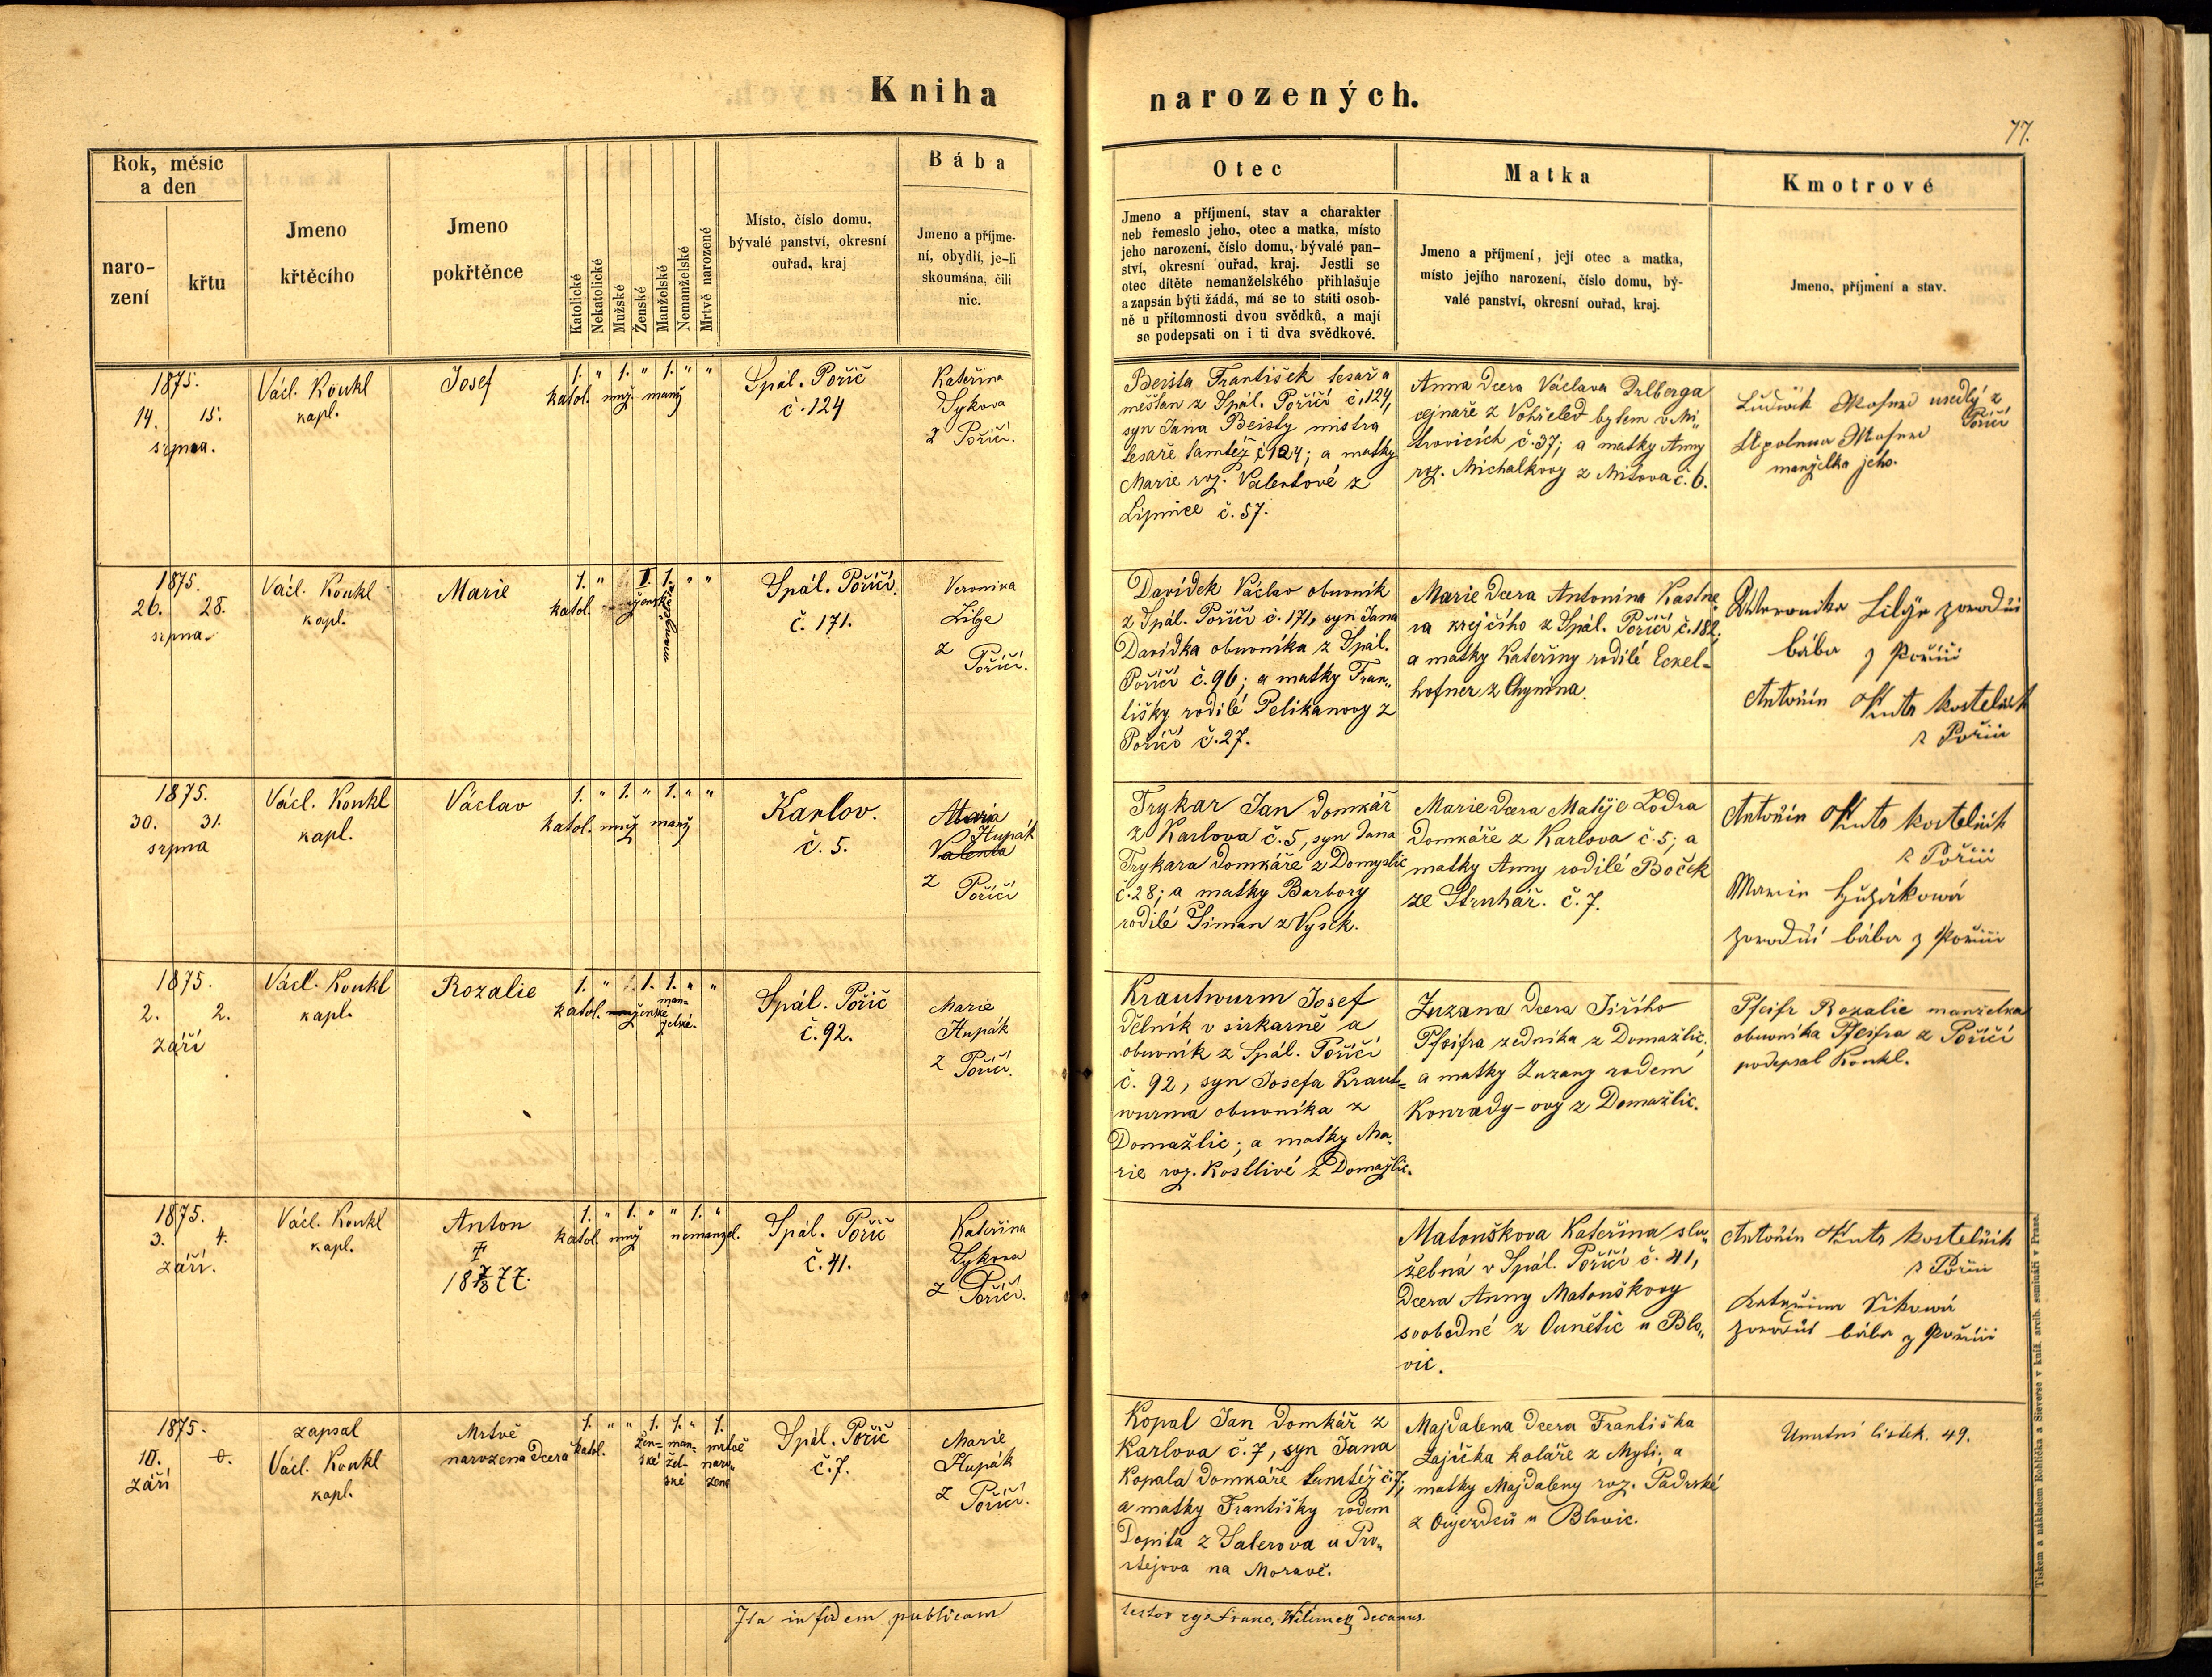 Kniha narozených.
77.
Rok, měsíc a den
narození
křtu
Jmeno křtěcího
Jmeno pokřtěnce
Katolické
Nekatolické
Mužské
Ženské
Manželské
Nemanželské
Mrtvě narozené
Místo, číslo domu,
bývalé panství, okresní
ouřad, kraj
Bába
Jmeno a příjme-
ní, obydlí, je-li
skoumána, čili
nic.
Otec
Jmeno a příjmení, stav a charakter
neb řemeslo jeho, otec a matka, místo
jeho narození, číslo domu, bývalé pan-
ství, okresní ouřad, kraj. Jestli se
otec dítěte nemanželského přihlašuje
a zapsán býti žádá, má se to státi osob-
ně u přítomnosti dvou svědků, a mají
se podepsati on i ti dva svědkové.
Matka
Jmeno a příjmení, její otec a matka,
místo jejího narození, číslo domu, bý-
valé panství, okresní ouřad, kraj.
Kmotrové
Jmeno, příjmení a stav.
1875.
14. 15.
srpna.
Václ. Koukl
kapl.
Josef
1. " 1. " 1. " "
katol. muž. manž
Spál. Pořič
č. 124
Kateřina
Sykova
z Poříčí.
Beista František tesař a
měšťan z Spál. Poříčí č. 124,
syn Jana Beisty mistra
tesaře tamtéž č 124; a matky
Marie roz. Valentové z
Lipnice č. 57.
Anna dcera Václava
z Vohřeled bytem v Mi„
trovicích č. 37; a matky Anny
roz. Michalkovy z Mítova č. 6.
Ludwik usedlý z
Poříčí
manželka jeho.
1875.
26. 28.
srpna.
Václ. Koukl
kapl.
Marie
1. " 1. 1. " "
katol. ženské
Spál. Poříčí.
č. 171.
Veronika
Lilge
z
Poříčí.
Davídek Václav obuvník
z Spál. Poříčí č. 171, syn Jana
Davídka obuvníka z Spál.
Poříčí č. 96; a matky Fran„
tišky rodilé Pelikanovy z
Poříčí č. 27.
Marie dcera Antonína Kastne
ra krejčího z Spál. Poříčí č. 182;
a matky Kateřiny rodilé Eckel=
hofner z Chynína.
Weronika Lilge porodní
bába z Poříčí
Antonín kostelník
z Poříčí
1875.
30. 31.
srpna
Václ. Koukl
kapl.
Václav
1. " 1. " 1. " "
katol. muž manž
Karlov.
č. 5.
Maria
Hupák
Valenta
z
Poříčí
Trykar Jan domkář
z Karlova č. 5, syn Jana
Trykara domkáře z Domyslic
č. 28; a matky Barbory
rodilé Šiman z Vysek.
Marie dcera Matěje Lodra
domkáře z Karlova č. 5; a
matky Anny rodilé Boček
ze Struhař. č. 7.
Antonín kostelník
z Poříčí
Marie Hupáková
porodní bába z Poříčí
1875.
2. 2.
září
Václ. Koukl
kapl.
Rozalie
1. " 1. 1. " "
katol. ženské man=
želské.
Spál. Pořič
č. 92.
Marie
Hupák
z
Poříčí.
Krautwurm Josef
dělník v sirkarně a
obuvník z Spál. Poříčí
č. 92, syn Josefa Kraut=
wurma obuvníka z
Domažlic; a matky Ma„
rie roz. Kostlivé z Domažlic.
Zuzana dcera Jiřího
Pfeifra zedníka z Domažlic.
a matky Zuzany rodem
Konrady-ovy z Domažlic.
Pfeifr Rozalie manželka
obuvníka Pfeifra z Poříčí
podepsal Koukl.
1875.
3. 4.
září.
Václ. Koukl
kapl.
Anton
18 77.
1. " 1. " " 1. "
katol. muž nemanžel.
Spál. Pořič
č. 41.
Kateřina
Sykova
z Poříčí.
Matouškova Kateřina slu„
žebná v Spál. Poříčí č. 41,
dcera Anny Matouškovy
svobodné z Ounětic u Blo„
vic.
Antonín kostelník
z Poříčí
Kateřina Sikowá
porodní bába z Poříčí
1875.
10. 0.
září
zapsal
Václ. Koukl
kapl.
Mrtvě
narozena dcera
1. " " 1. 1. " 1.
katol. žen=
ské man=
žel=
ské mrtvě
naro„
zené
Spál. Pořič
č. 7.
Marie
Hupák
z
Poříčí.
Kopal Jan domkář z
Karlova č. 7, syn Jana
Kopala domkáře tamtéž č. 7;
a matky Františky rodem
Dopita z Saterova u Pro„
stejova na Moravě.
Majdalena dcera Františka
Zajíčka koláře z Myti; a
matky Majdaleny roz. Padrské
z Oujezdců u Blovic.
Umrtní lístek. 49.
Ita in fidem publicam
testor Franc. Wilimek, Decanus.
Tiskem a nákladem Rohlíčka a Sieverse v kníž. arcib. semináři v Praze.